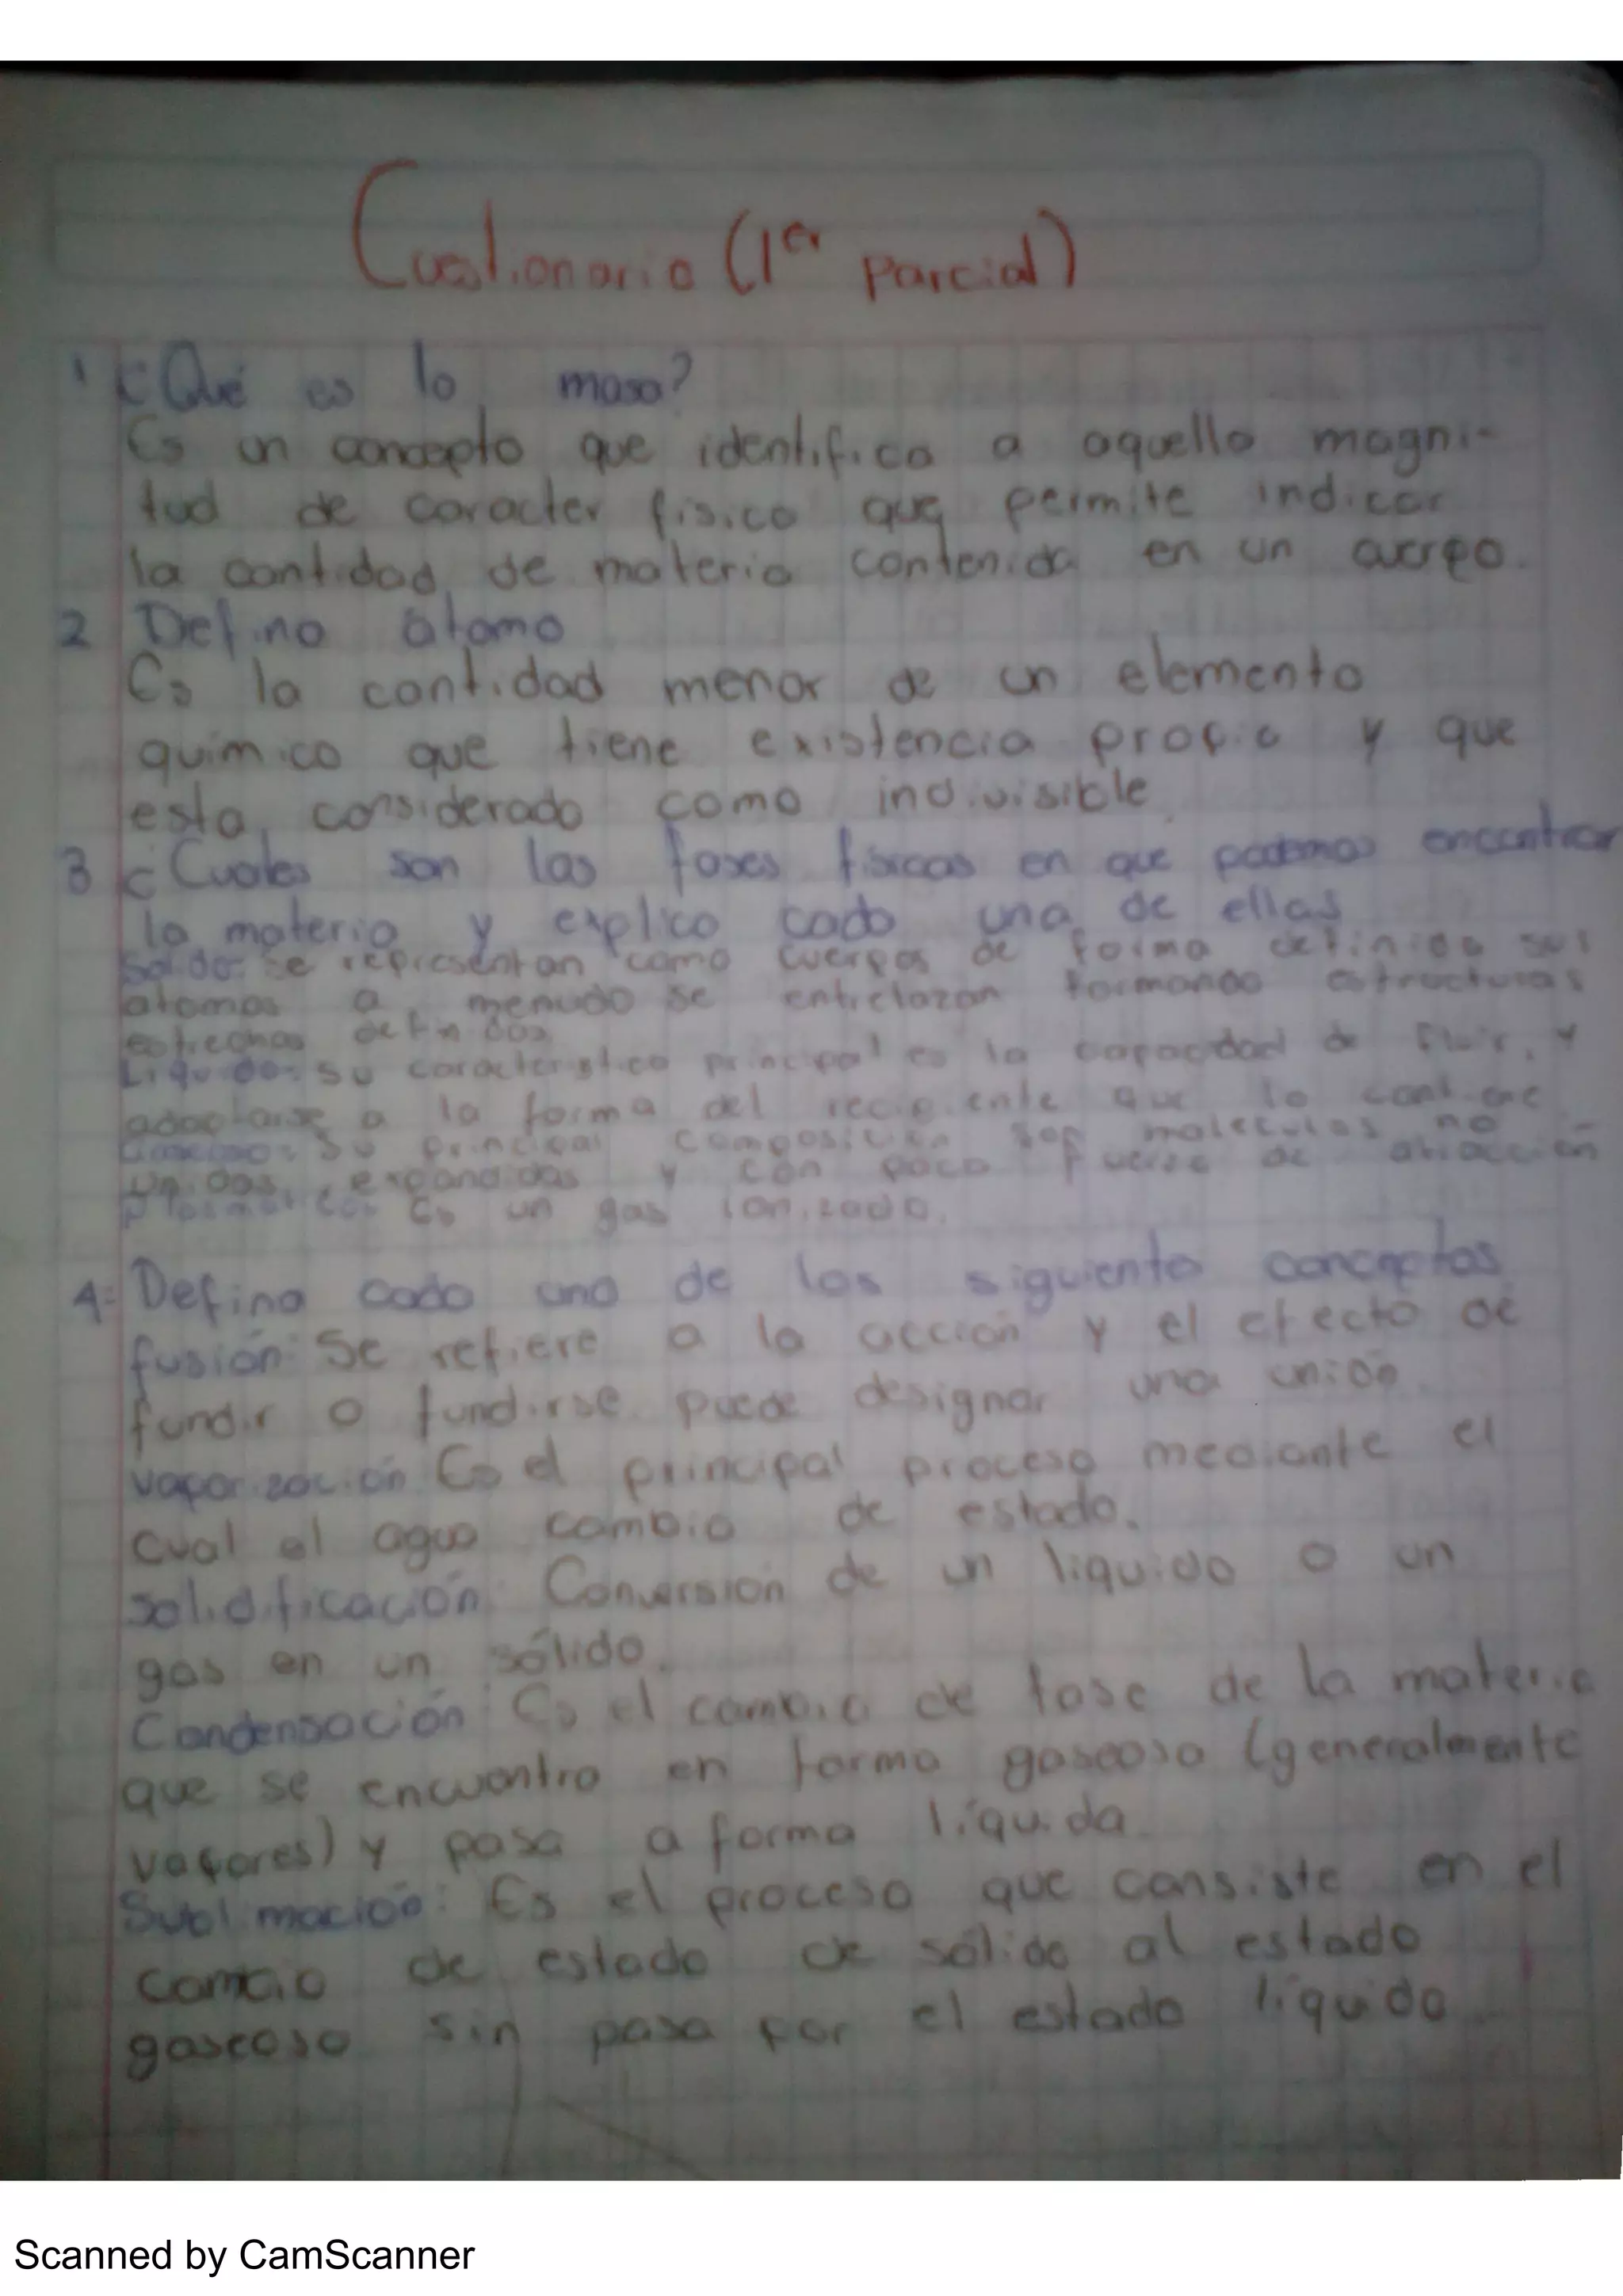 Cuestionario (1er parcial)
1 ¿Qué es la masa?
Es un concepto que identifica a aquella magni-
tud de caracter fisico que permite indicar
la cantidad de materia contenida en un cuerpo.
2 Defina átomo
Es la cantidad menor de un elemento
quimico que tiene existencia propia y que
esta considerado como indivisible
3 ¿Cuales son las fases fisicas en que podemos encontrar
la materia y explica cada una de ellas
Solido: se representan como cuerpos de forma definida sus
atomos a menudo se entrelazan formando estructuras
estrechas definidas
Liquido: su caracteristica principal es la capacidad de fluir, y
adaptarse a la forma del recipiente que lo contiene
Gaseoso: Su principal composición son moleculas no
unidas, expandidas y con poca fuerza de atracción
plasmatico: Es un gas ionizado.
4= Defina cada una de los siguiente conceptos
fusión: Se refiere a la acción y el efecto de
fundir o fundirse puede designar una unión.
vaporización Es el principal proceso mediante el
cual el agua cambia de estado.
solidificación: Conversion de un liquido o un
gas en un sólido.
Condensación: Es el cambio de fase de la materia
que se encuentra en forma gaseosa (generalmente
vapores) y pasa a forma líquida
Sublimación: Es el proceso que consiste en el
cambio de estado de sólido al estado
gaseoso sin pasa por el estado líquido
Scanned by CamScanner